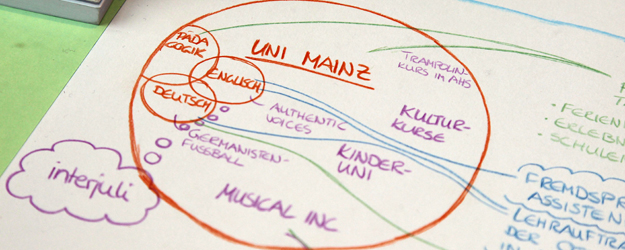 PÄDA
GOGIK
UNI MAINZ
ENGLISCH
DEUTSCH
TRAMPOLIN-
KURS IM AHS
AUTHENTIC
VOICES
KULTUR-
KURSE
GERMANISTEN-
FUSSBALL
KINDER-
UNI
interjuli
MUSICAL INC
· FERIEN
· ERLEBN
· SCHULEN
FREMDSPR
ASSISTEN
LEHRAUFTRA
DER